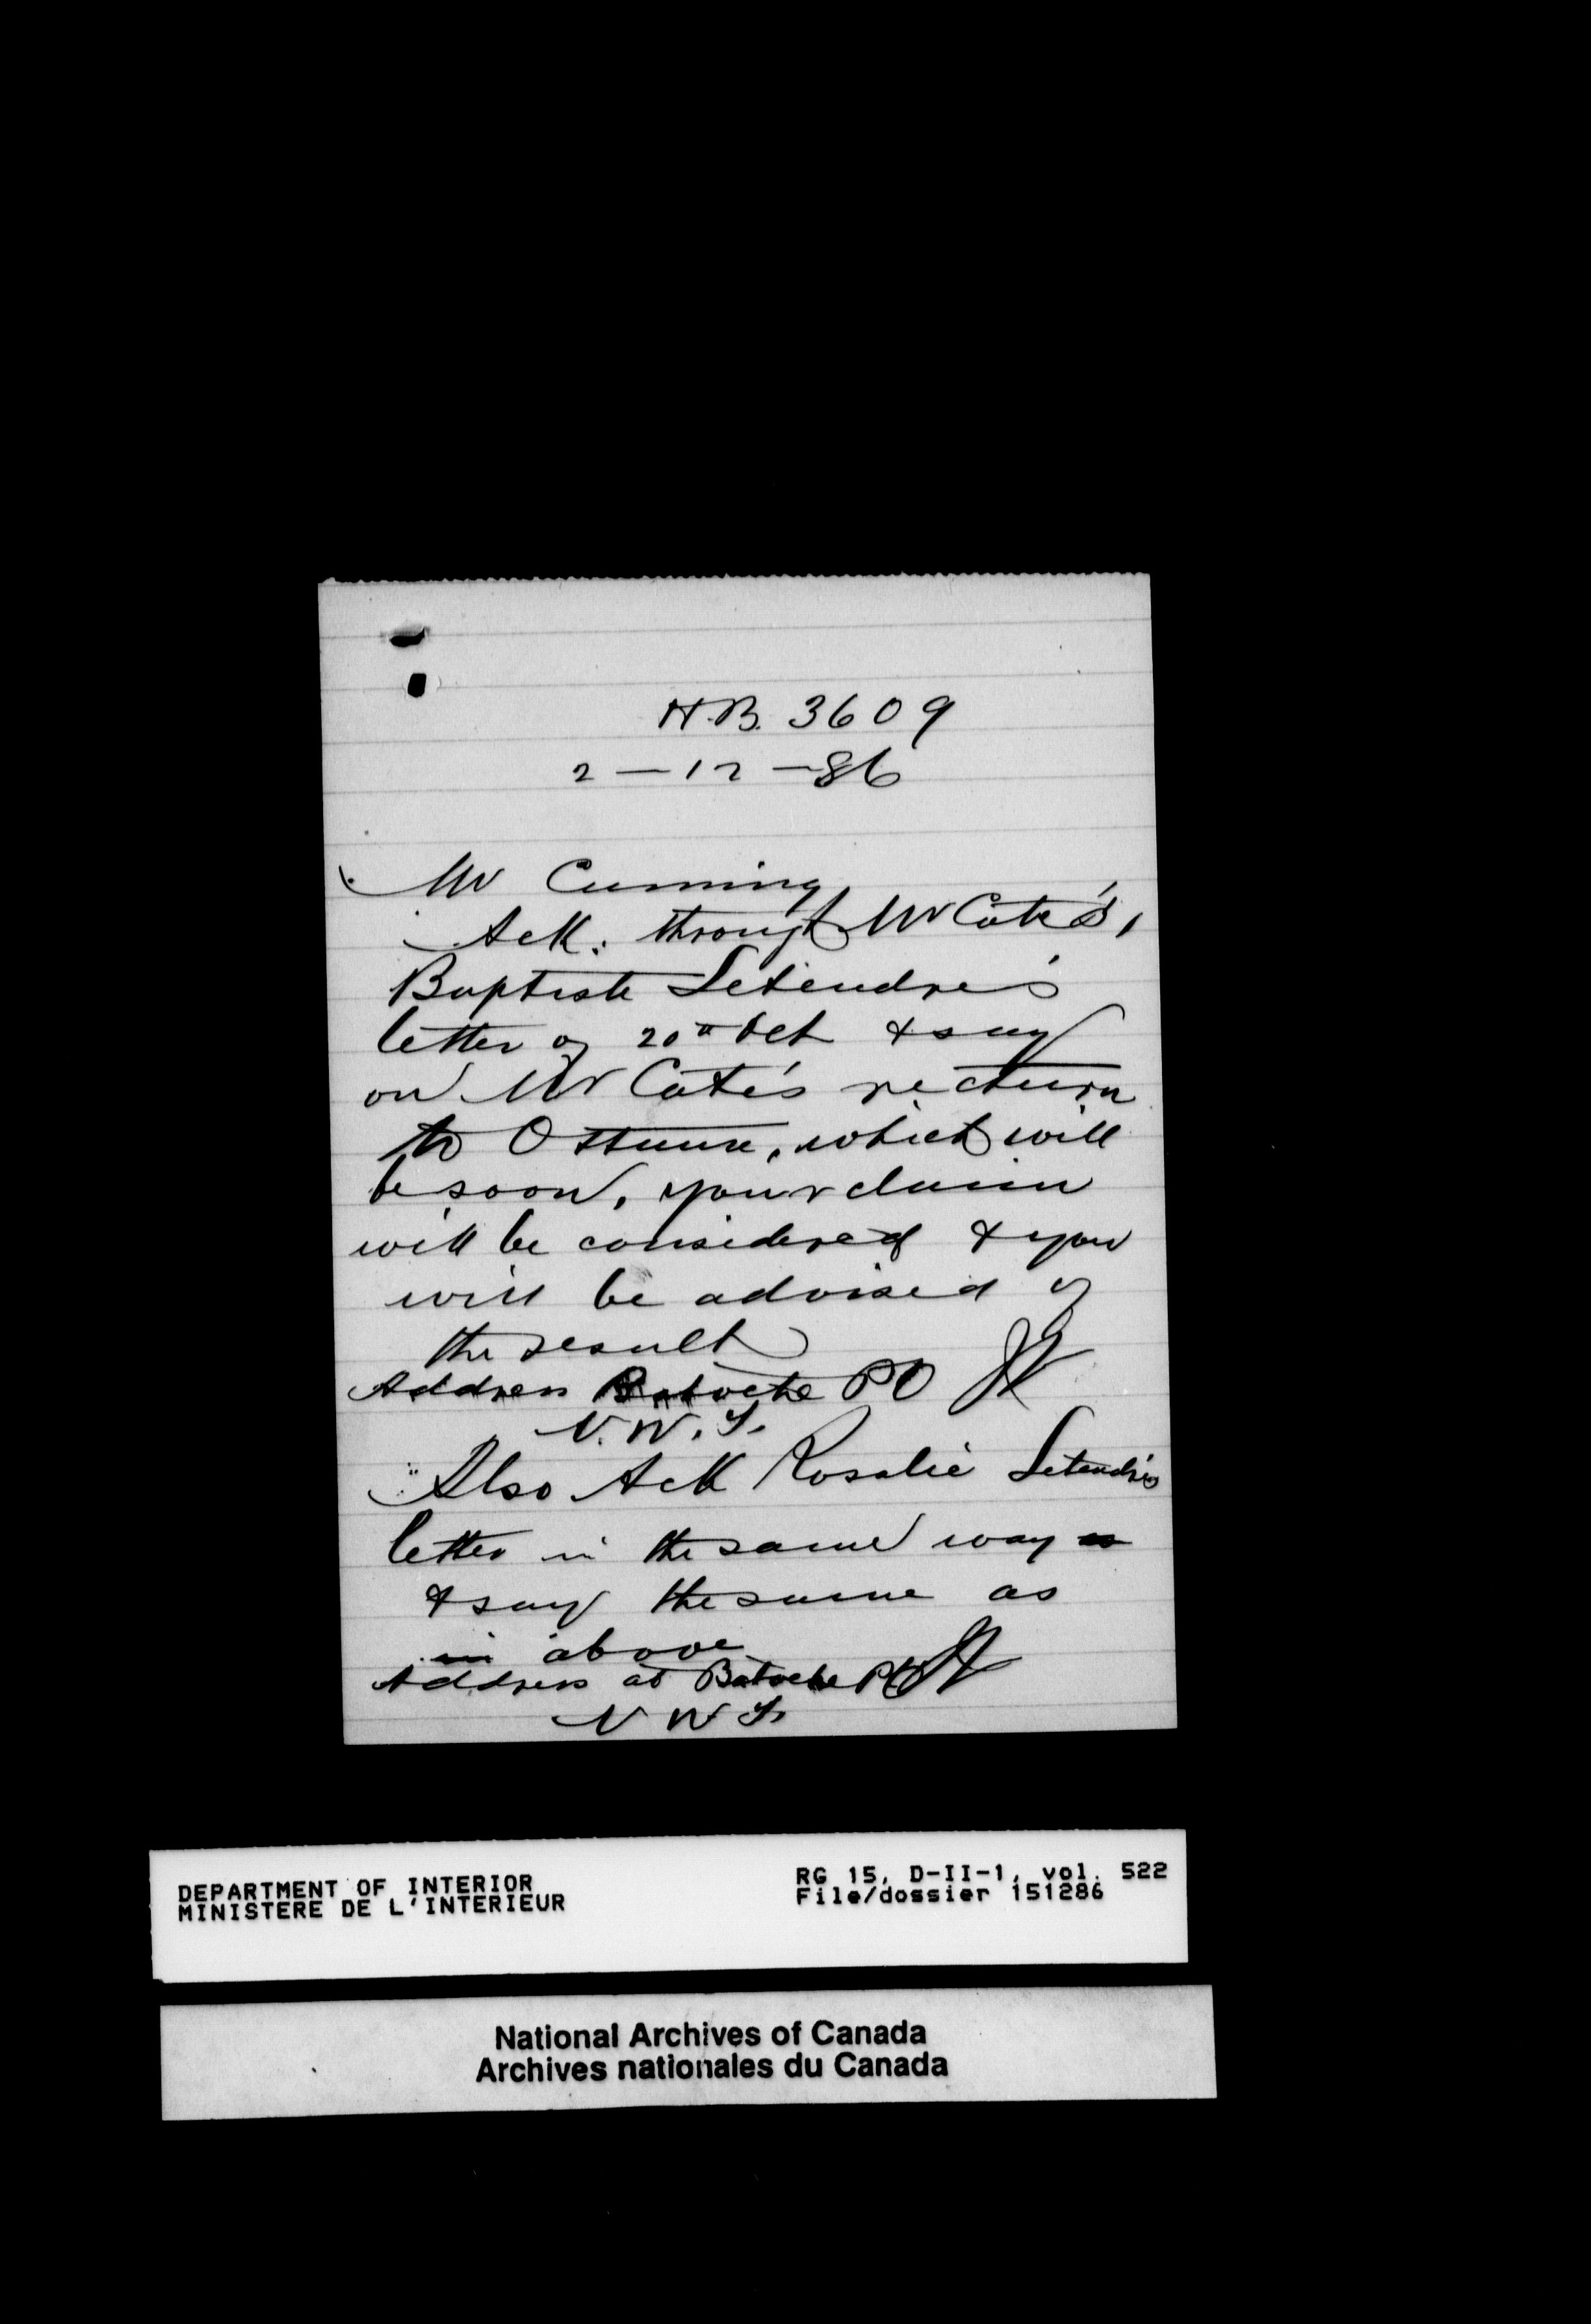 H.B. 3609
2 - 12 - 86
Mr Cumming
Ack. through Mr Coté's,
Baptiste Letendre's
letter of 20th Oct & say
on Mr Coté's return
to Ottawa, which will
be soon, your claim
will be considered & you
will be advised of
the result
Address Batoche PO
N.W.T.
Also Ack Rosalie Letendre's
letter in the same way as
& say the same as
in above
Address at Batoche PO
N W T
DEPARTMENT OF INTERIOR
MINISTERE DE L'INTERIEUR
RG 15, D-II-1, vol. 522
File/dossier 151286
National Archives of Canada
Archives nationales du Canada